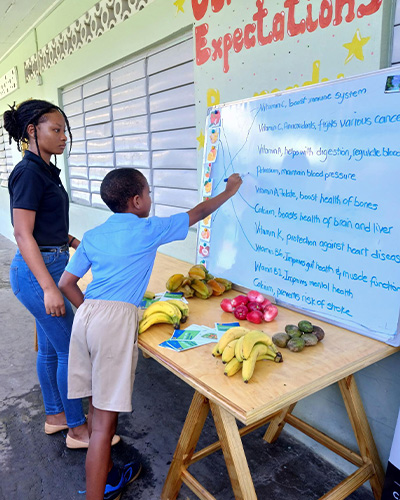 Our
Expectations
Vitamin C, boost immune system
Vitamin C, Antioxidants, fights various cancer
Vitamin A, helps with digestion, regulate blood
Potassium, maintain blood pressure
Vitamin A, folate, boost health of bones
Calcium, boosts health of brain and liver
Vitamin K, protection against heart disease
Vitamin B6, Improves gut health & muscle function
Vitamin B1, Improves mental health
Calcium, prevents risk of stroke